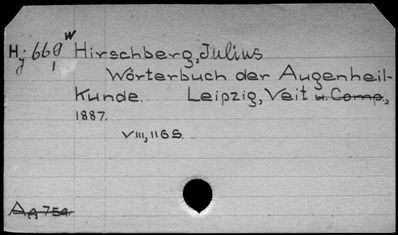 W
H: 660 Hirschberg, Julius
J 1 Wörterbuch der Augenheil-
Kunde. Leipzig, Veit u. Comp.,
1887.
VIII, 116 S.
Ag 754